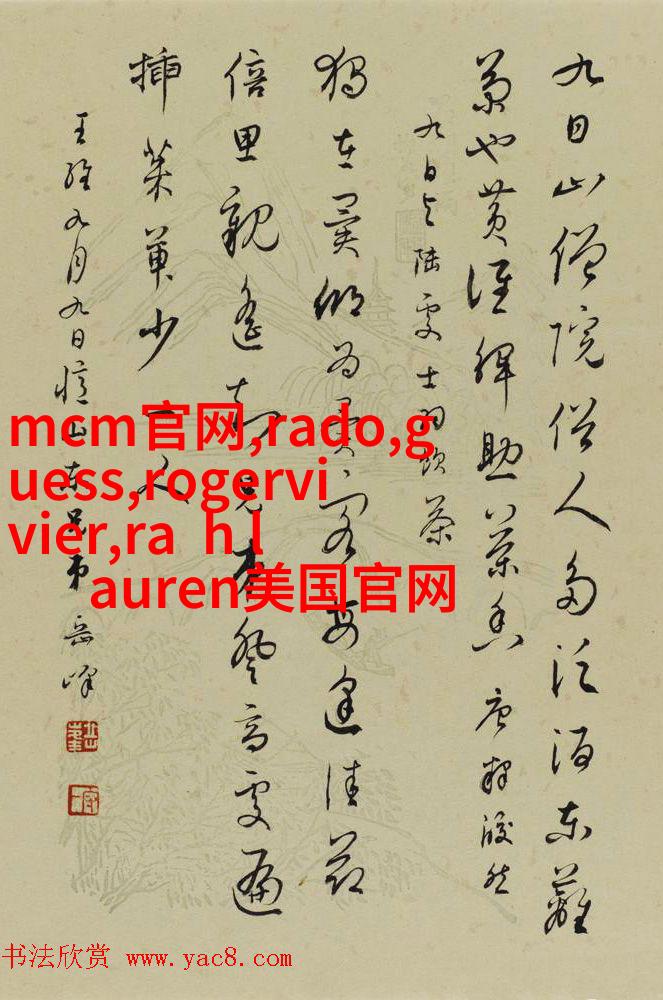 九日山僧院俗人多泛酒東籬
菊也黄誰解助茶香 唐釋皎然
九日与陸處士羽飲茶
獨在異鄉為異客每逢佳節
倍思親遙知兄弟登高處遍
插茱萸少一人
王維九月九日憶山東兄弟 岳峰
mcm官网,rado,g
uess,rogervi
vier,ra h l
auren美国官网
书法欣赏 www.yac8.com